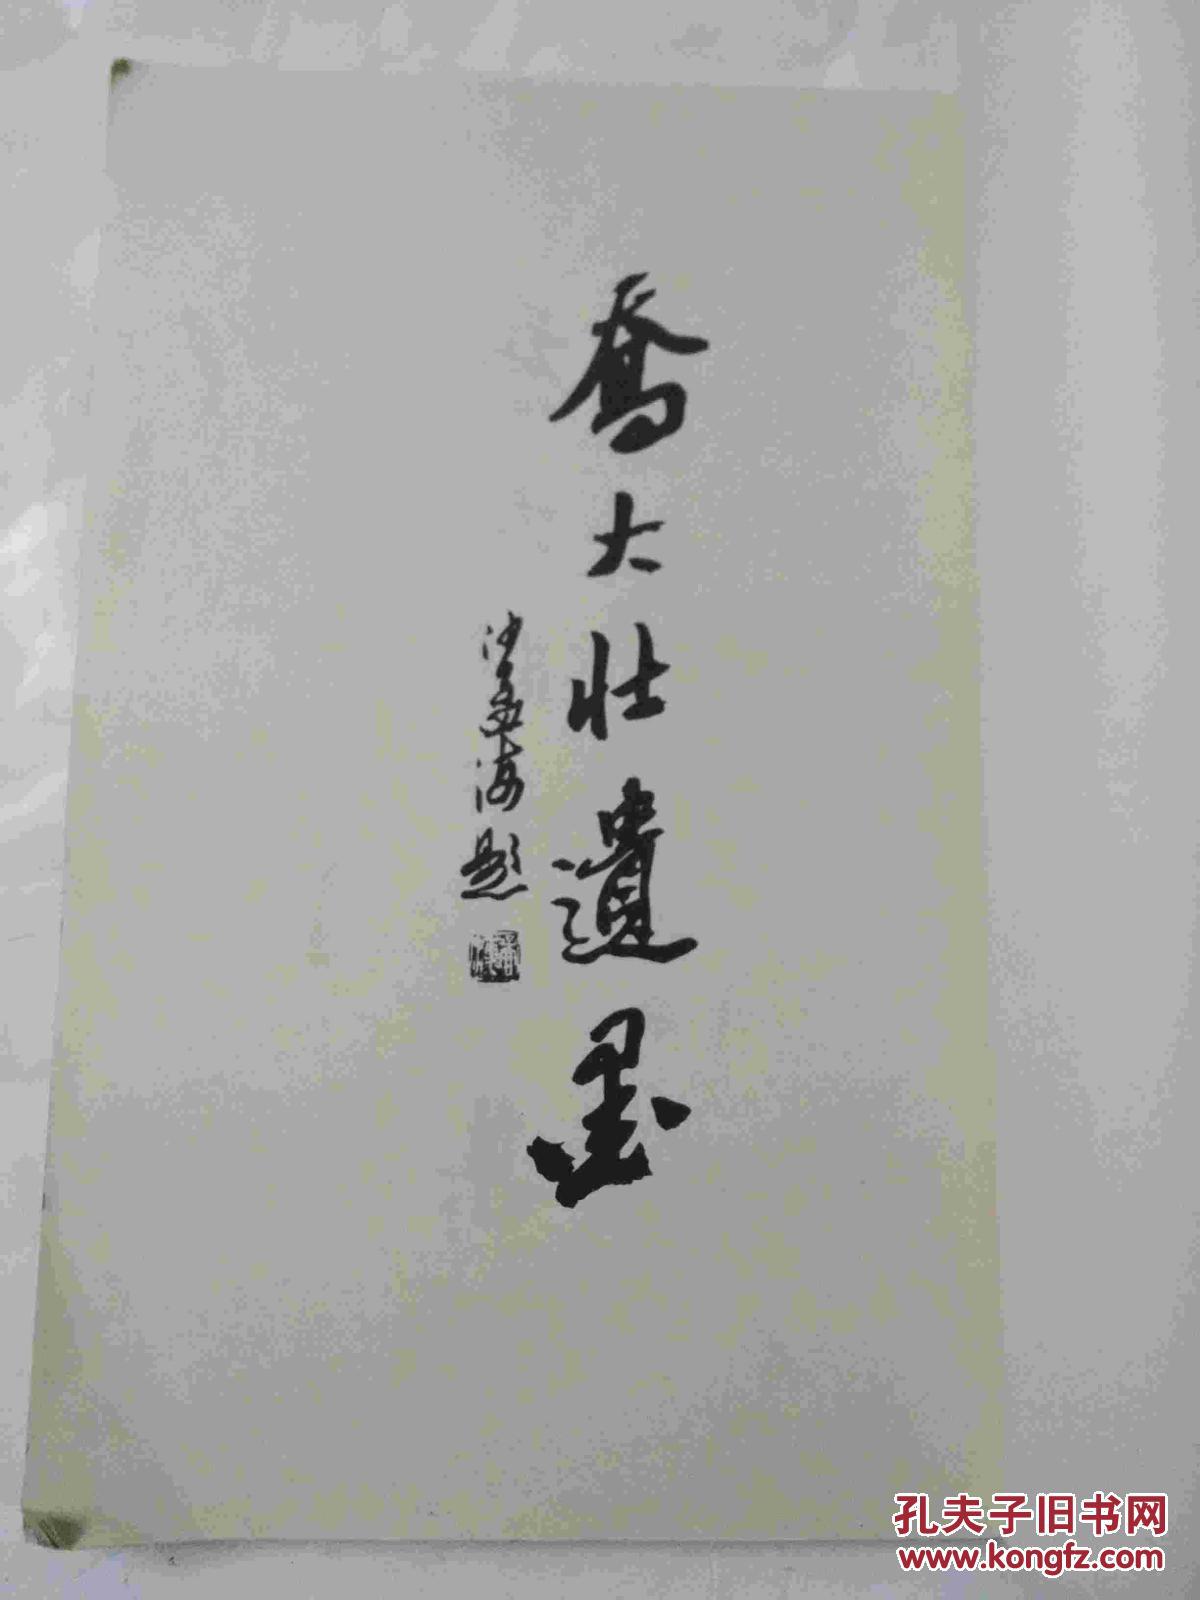 喬大壯遺墨
沙孟海題
孔夫子旧书网
www.kongfz.com